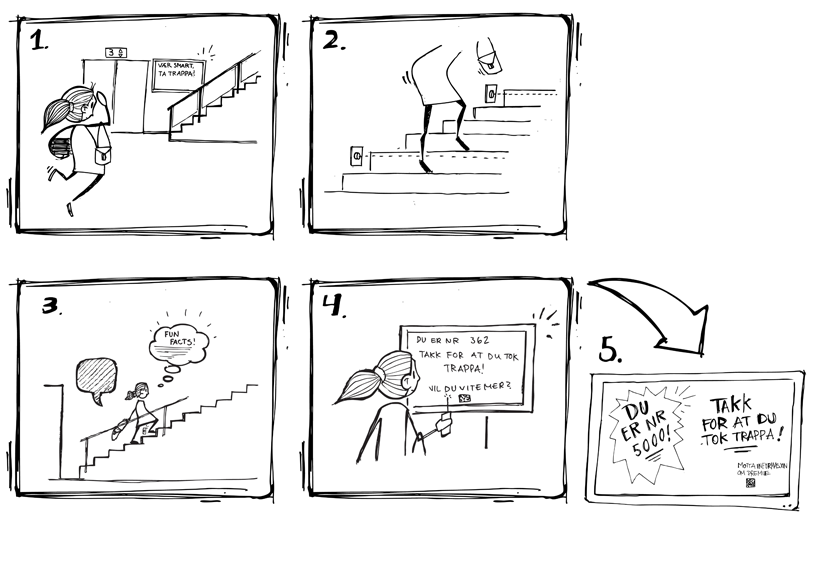 1.
3
VÆR SMART,
TA TRAPPA!
2.
3.
FUN
FACTS!
4.
DU ER NR 362
TAKK FOR AT DU TOK
TRAPPA!
VIL DU VITE MER?
5.
DU
ER NR
5000!
TAKK
FOR AT DU
TOK TRAPPA!
MOTTA INFORMASJON
OM PREMIE